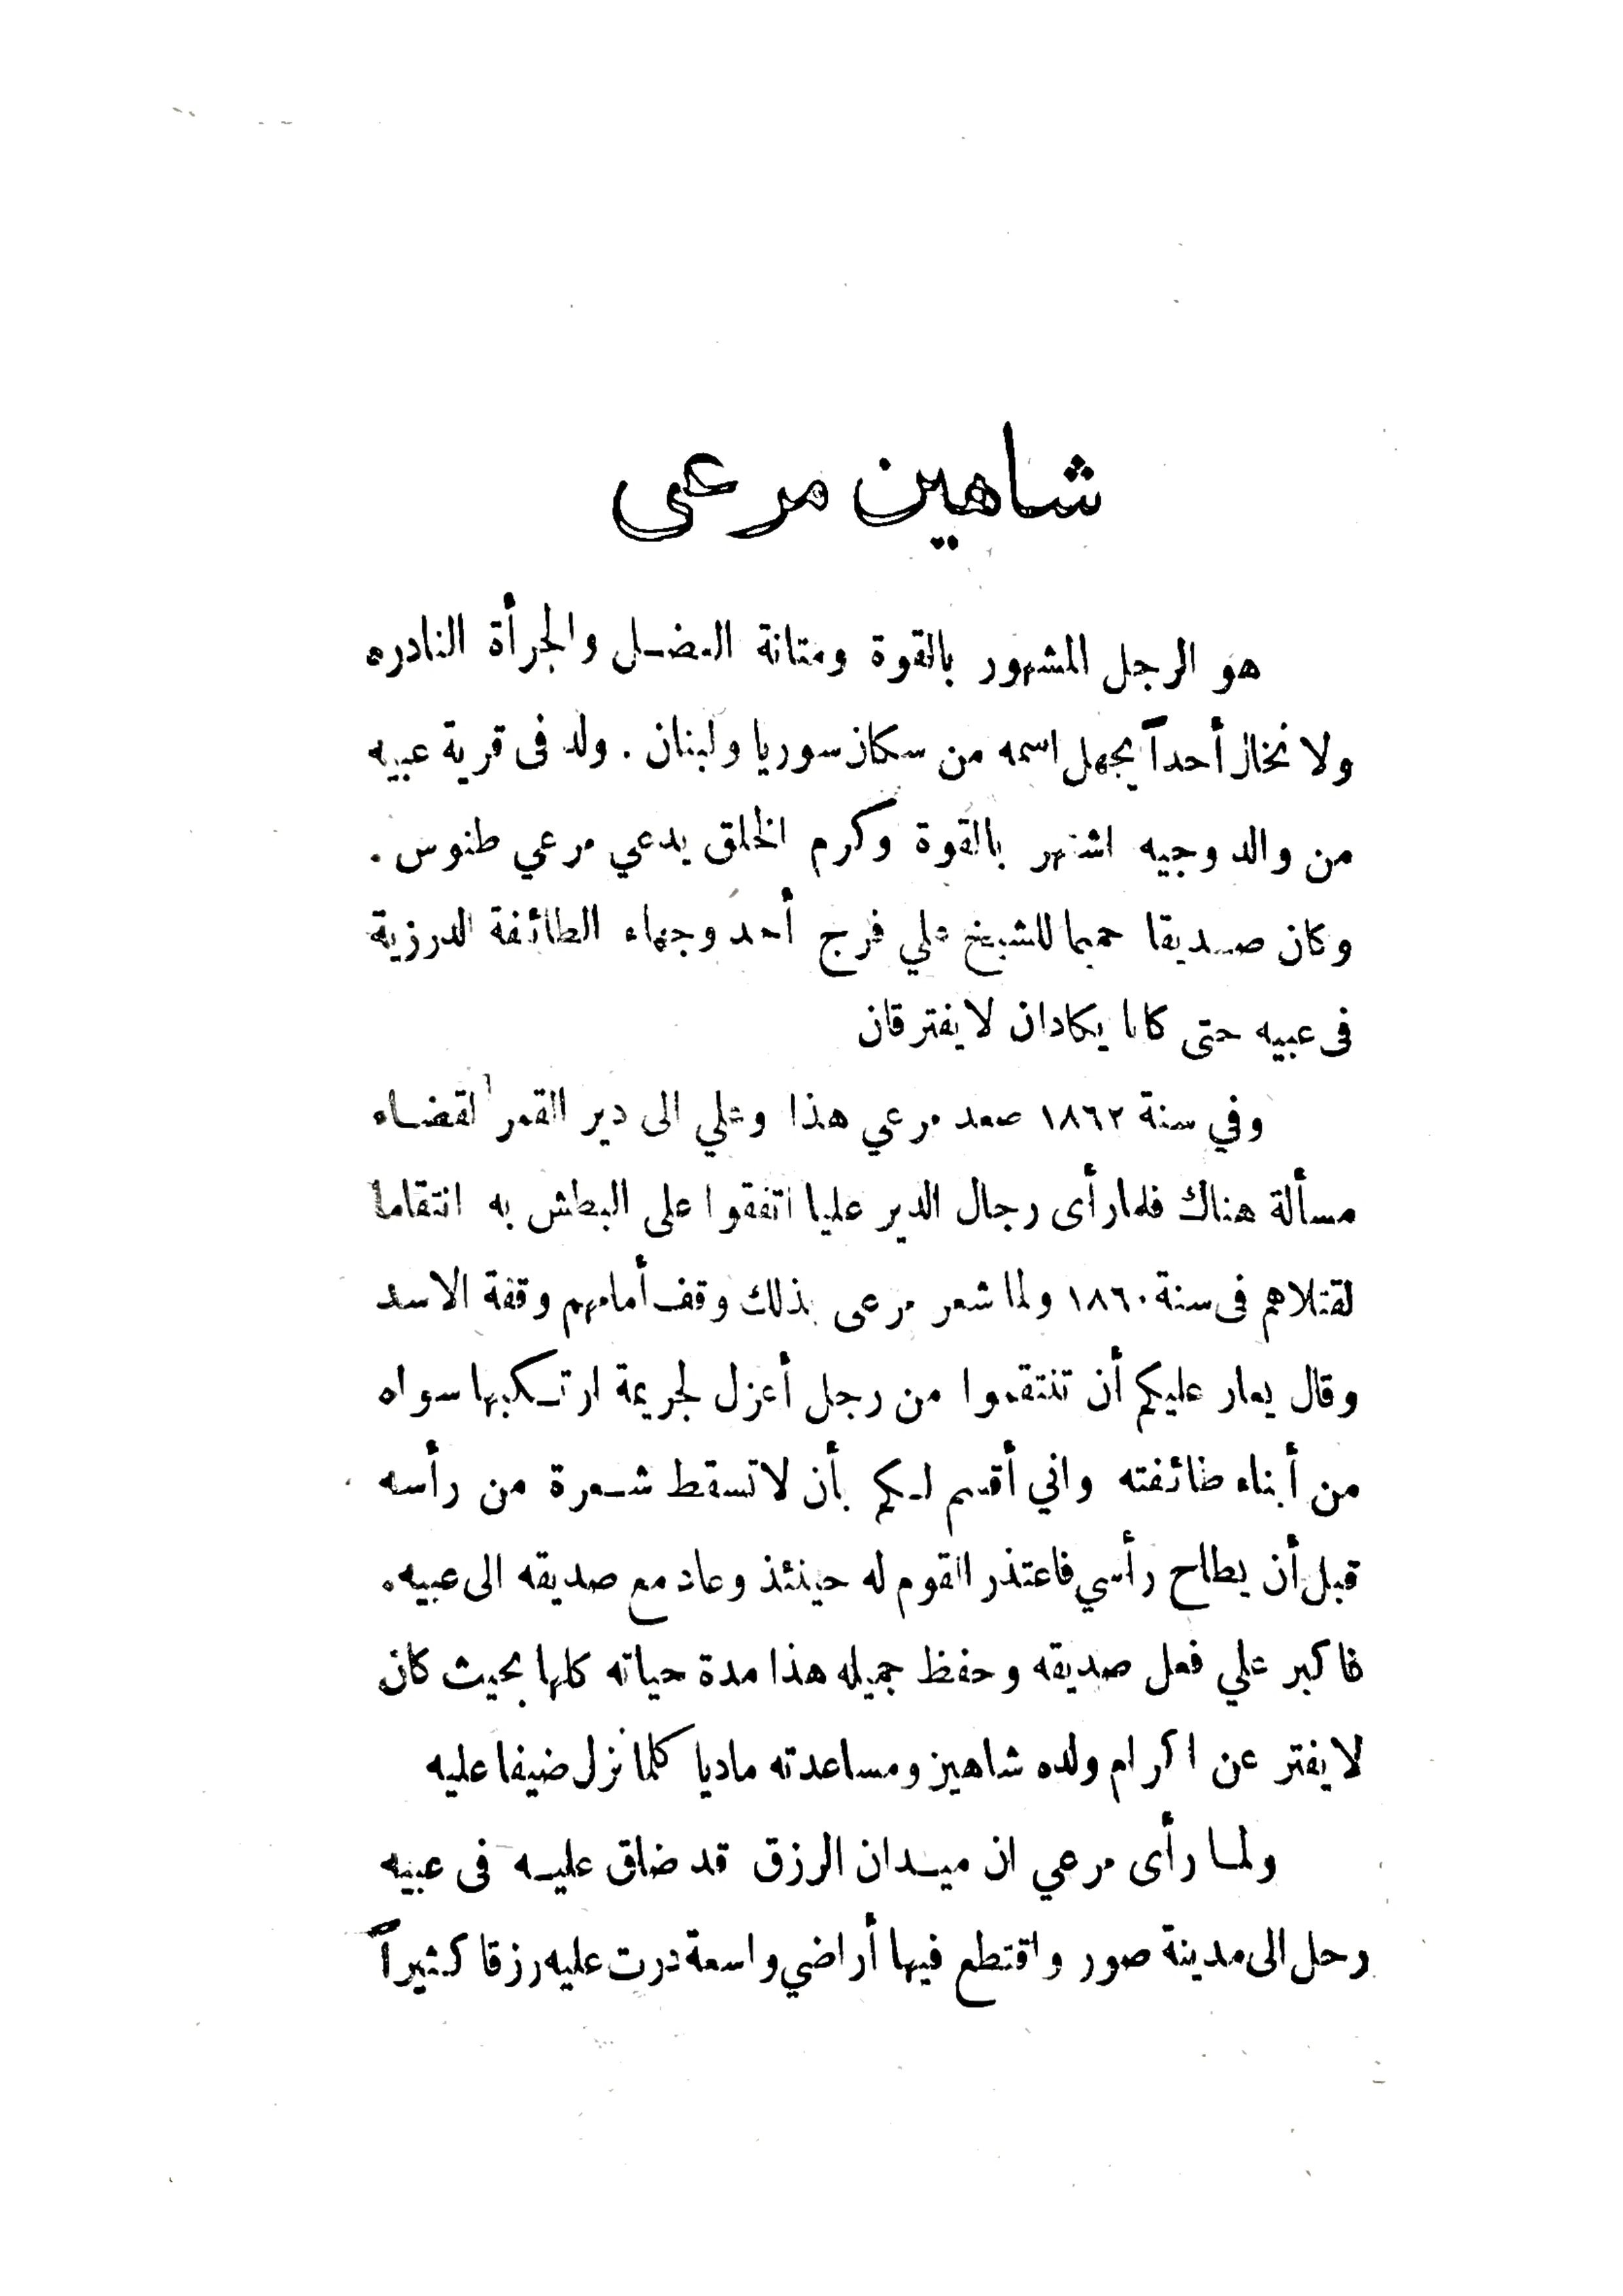 شاهين مرعى
هو الرجل المشهور بالقوة ومتانة العضل والجرأة النادره
ولا نخال أحداً يجهل اسمه من سكان سوريا ولبنان . ولد فى قرية عبيه
من والد وجيه اشتهر بالقوة وكرم الخلق يدعي مرعي طنوس .
وكان صديقا حميما للشيخ علي فرج أحد وجهاء الطائفة الدرزية
فى عبيه حتى كانا يكادان لا يفترقان
وفي سنة ١٨٦٢ صعد مرعي هذا وعلي الى دير القمر لقضاء
مسألة هناك فلما رأى رجال الدير عليا اتفقوا على البطش به انتقاما
لقتلاهم فى سنة ١٨٦٠ ولما شعر مرعى بذلك وقف أمامهم وقفة الاسد
وقال يعار عليكم أن تنتقموا من رجل أعزل لجريمة ارتكبها سواه
من أبناء طائفته واني أقسم لكم بأن لا تسقط شعرة من رأسه
قبل أن يطاح رأسي فاعتذر القوم له حينئذ وعاد مع صديقه الى عبيه .
فاكبر علي فعل صديقه وحفظ جميله هذا مدة حياته كلها بحيث كان
لا يفتر عن اكرام ولده شاهين ومساعدته ماديا كلما نزل ضيفا عليه
ولما رأى مرعي ان ميدان الرزق قد ضاق عليه فى عبيه
رحل الى مدينة صور واقتطع فيها أراضي واسعة درت عليه رزقا كثيراً